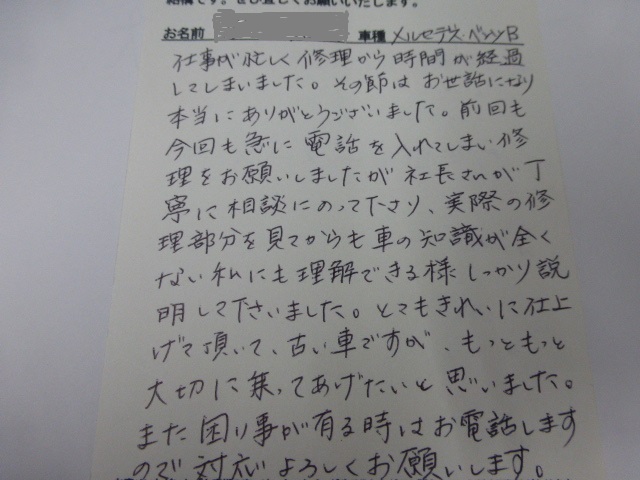 結構です。ぜひ宜しくお願いいたします。
お名前 車種 メルセデス・ベンツB
仕事が忙しく修理から時間が経過
してしまいました。その節はお世話になり
本当にありがとうございました。前回も
今回も急に電話を入れてしまい修
理をお願いしましたが社長さんが丁
寧に相談にのって下さり、実際の修
理部分を見てからも車の知識が全く
ない私にも理解できる様しっかり説
明して下さいました。とてもきれいに仕上
げて頂いて、古い車ですが、もっともっと
大切に乗ってあげたいと思いました。
また困り事が有る時はお電話します
ので対応よろしくお願いします。